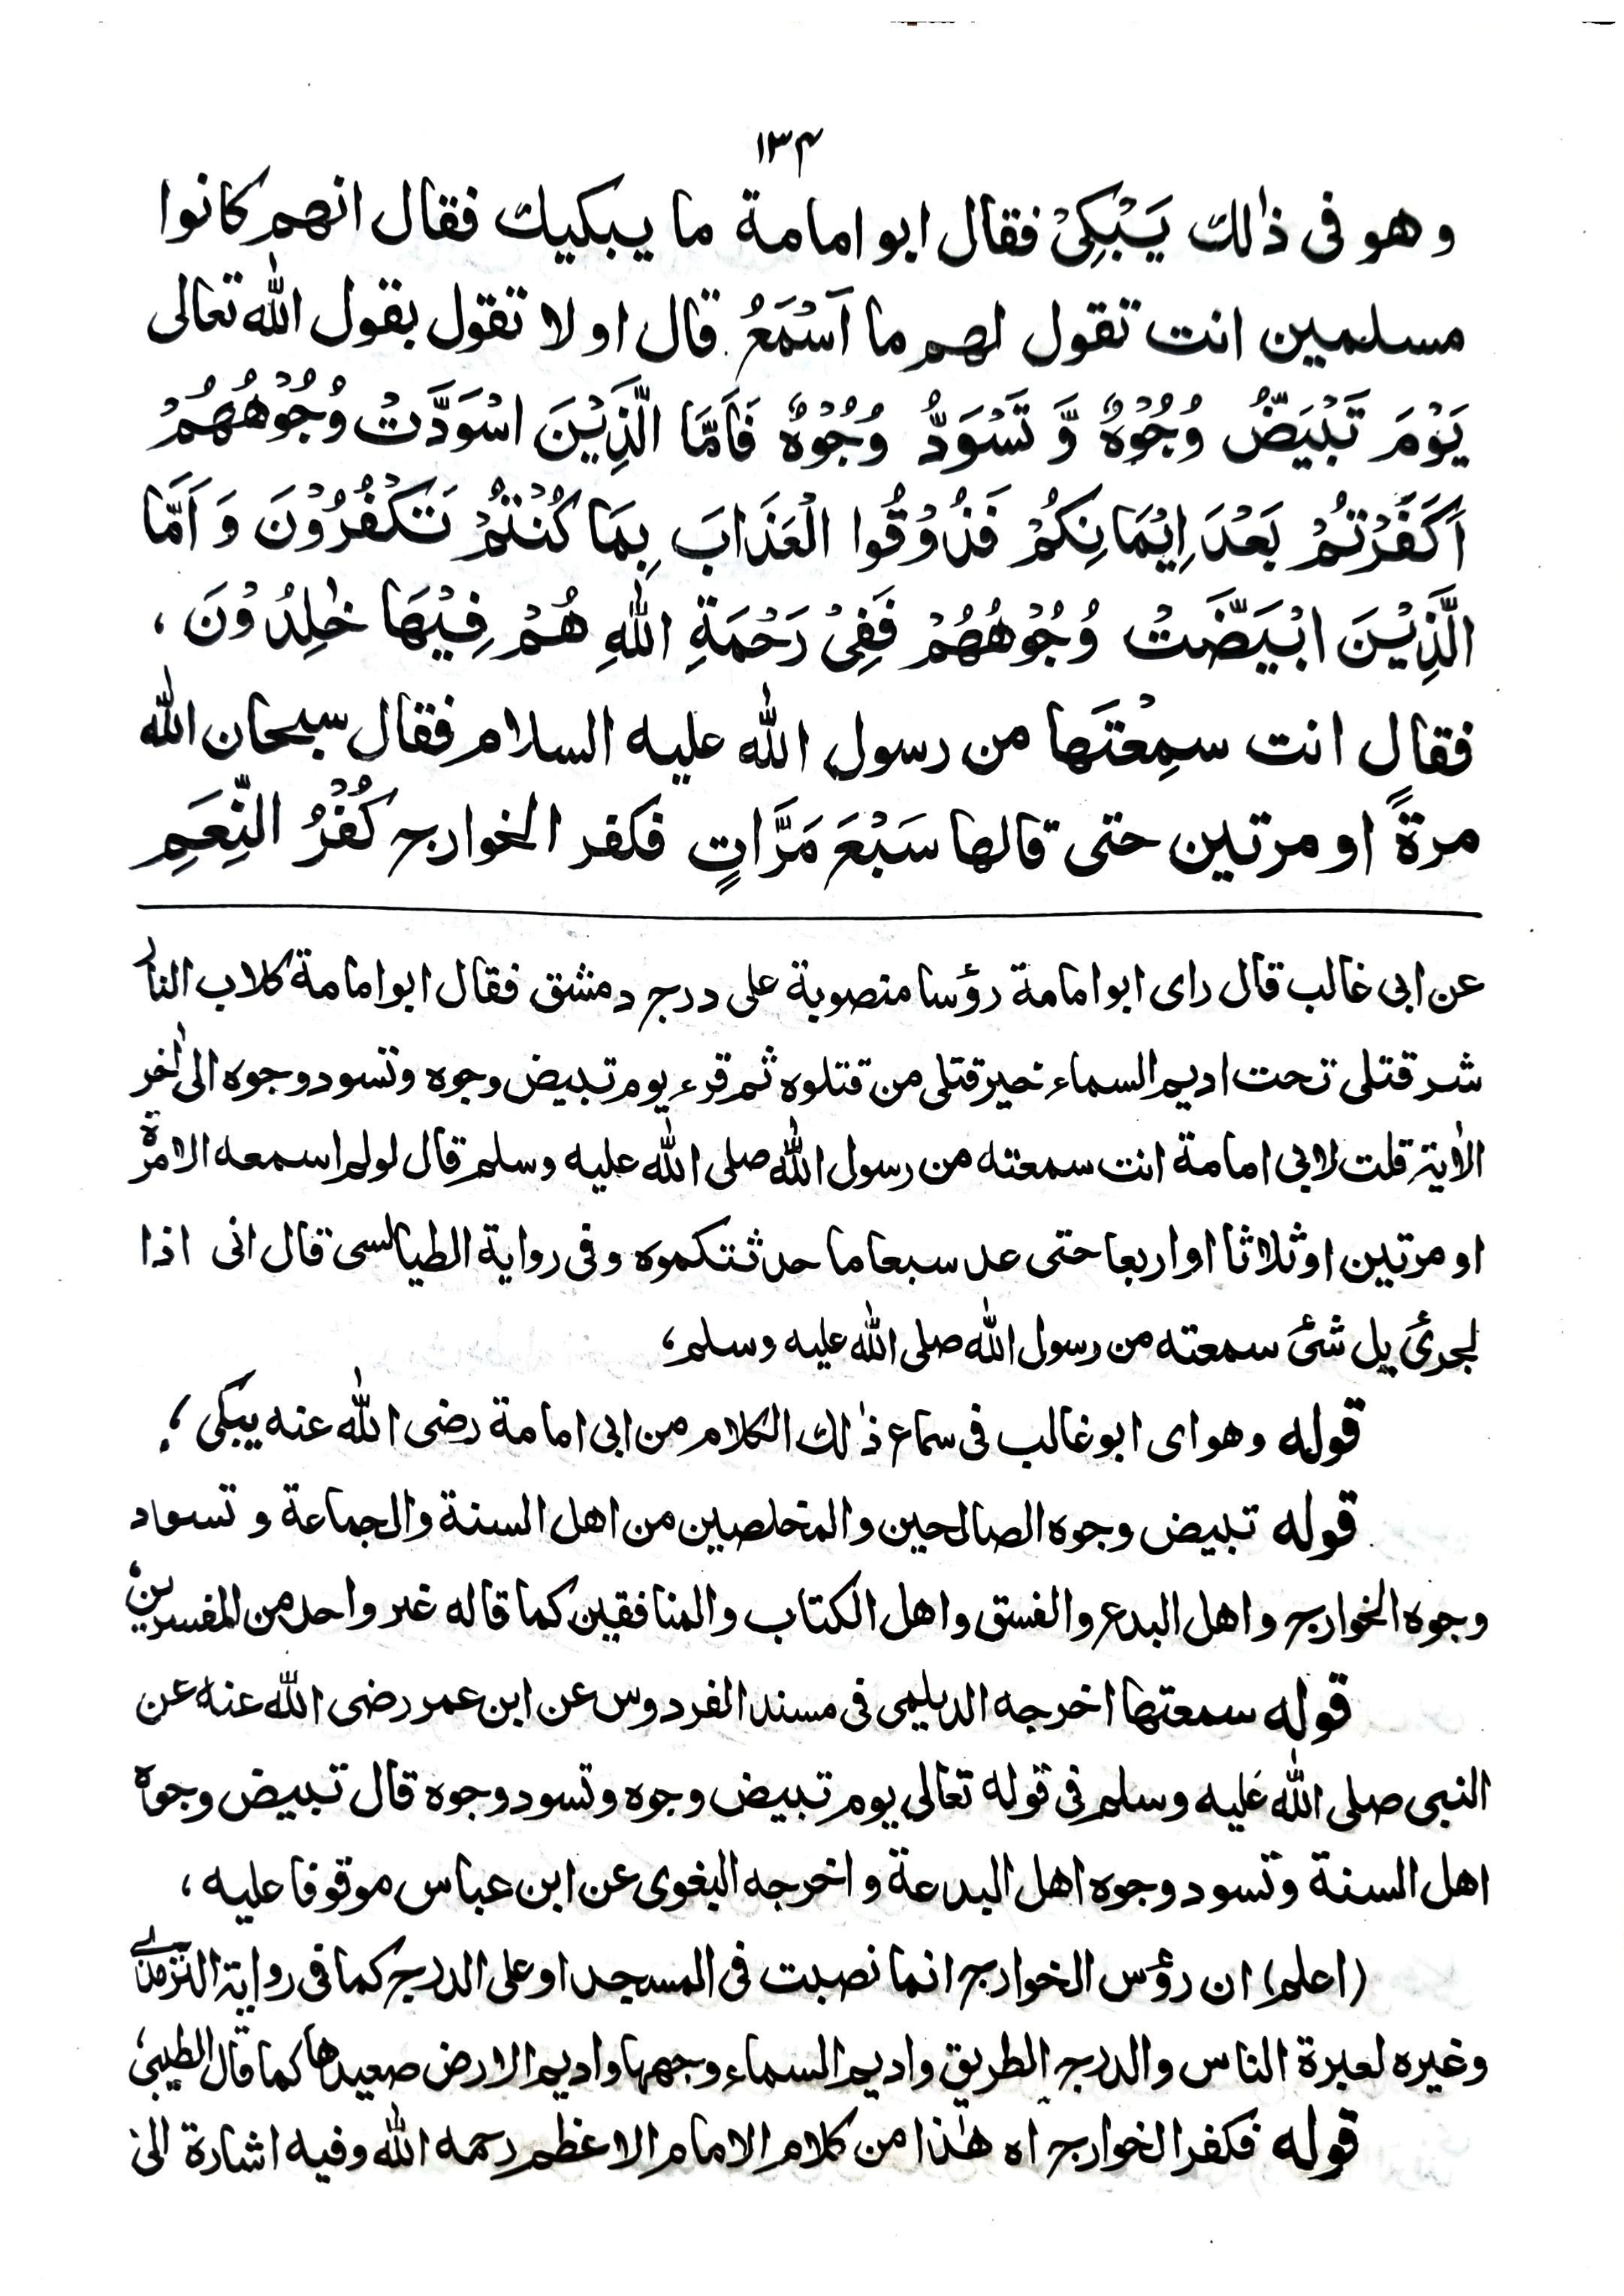 ۱۳۴
وهو فى ذٰلك يَبْكِىْ فقال ابو امامة ما يبكيك فقال انهم كانوا
مسلمين انت تقول لهم ما اَسْمَعُ قال او لا تقول بقول الله تعالى
يَوْمَ تَبْيَضُّ وُجُوْهٌ وَّ تَسْوَدُّ وُجُوْهٌ فَاَمَّا الَّذِيْنَ اسْوَدَّتْ وُجُوْهُهُمْ
اَكَفَرْتُمْ بَعْدَ اِيْمَانِكُمْ فَذُوْقُوا الْعَذَابَ بِمَا كُنْتُمْ تَكْفُرُوْنَ وَ اَمَّا
الَّذِيْنَ ابْيَضَّتْ وُجُوْهُهُمْ فَفِىْ رَحْمَةِ اللهِ هُمْ فِيْهَا خٰلِدُوْنَ ،
فقال انت سمِعْتَها من رسول الله عليه السلام فقال سبحان الله
مرةً او مرتين حتى قالها سَبْعَ مَرَّاتٍ فكفر الخوارج كُفْرُ النِّعَمِ
عن ابى غالب قال راى ابو امامة رؤسا منصوبة على درج دمشق فقال ابو امامة كلاب النار
شر قتلى تحت اديم السماء خير قتلى من قتلوه ثم قرء يوم تبيض وجوه وتسود وجوه الى اٰخر
الاٰية قلت لابى امامة انت سمعته من رسول الله صلى الله عليه وسلم قال لو لم اسمعه الا مرة
او مرتين او ثلاثا او اربعا حتى عد سبعا ما حدثتكموه وفى رواية الطيالسى قال انى اذا
لجرئ بل شئ سمعته من رسول الله صلى الله عليه وسلم،
قوله وهو اى ابو غالب فى سماع ذٰلك الكلام من ابى امامة رضى الله عنه يبكى ؛
قوله تبيض وجوه الصالحين والمخلصين من اهل السنة والجماعة و تسواد
وجوه الخوارج واهل البدع والفسق واهل الكتاب والمنافقين كما قاله غير واحد من المفسرين
قوله سمعتها اخرجه الديلمى فى مسند الفردوس عن ابن عمر رضى الله عنه عن
النبى صلى الله عليه وسلم فى قوله تعالى يوم تبيض وجوه وتسود وجوه قال تبيض وجوه
اهل السنة وتسود وجوه اهل البدعة واخرجه البغوى عن ابن عباس موقوفا عليه ،
(اعلم) ان رؤس الخوارج انما نصبت فى المسجد او على الدرج كما فى رواية الترمذى
وغيره لعبرة الناس والدرج الطريق واديم السماء وجهها واديم الارض صعيدها كما قال الطيبى
قوله فكفر الخوارج اه هٰذا من كلام الامام الاعظم رحمه الله وفيه اشارة الى